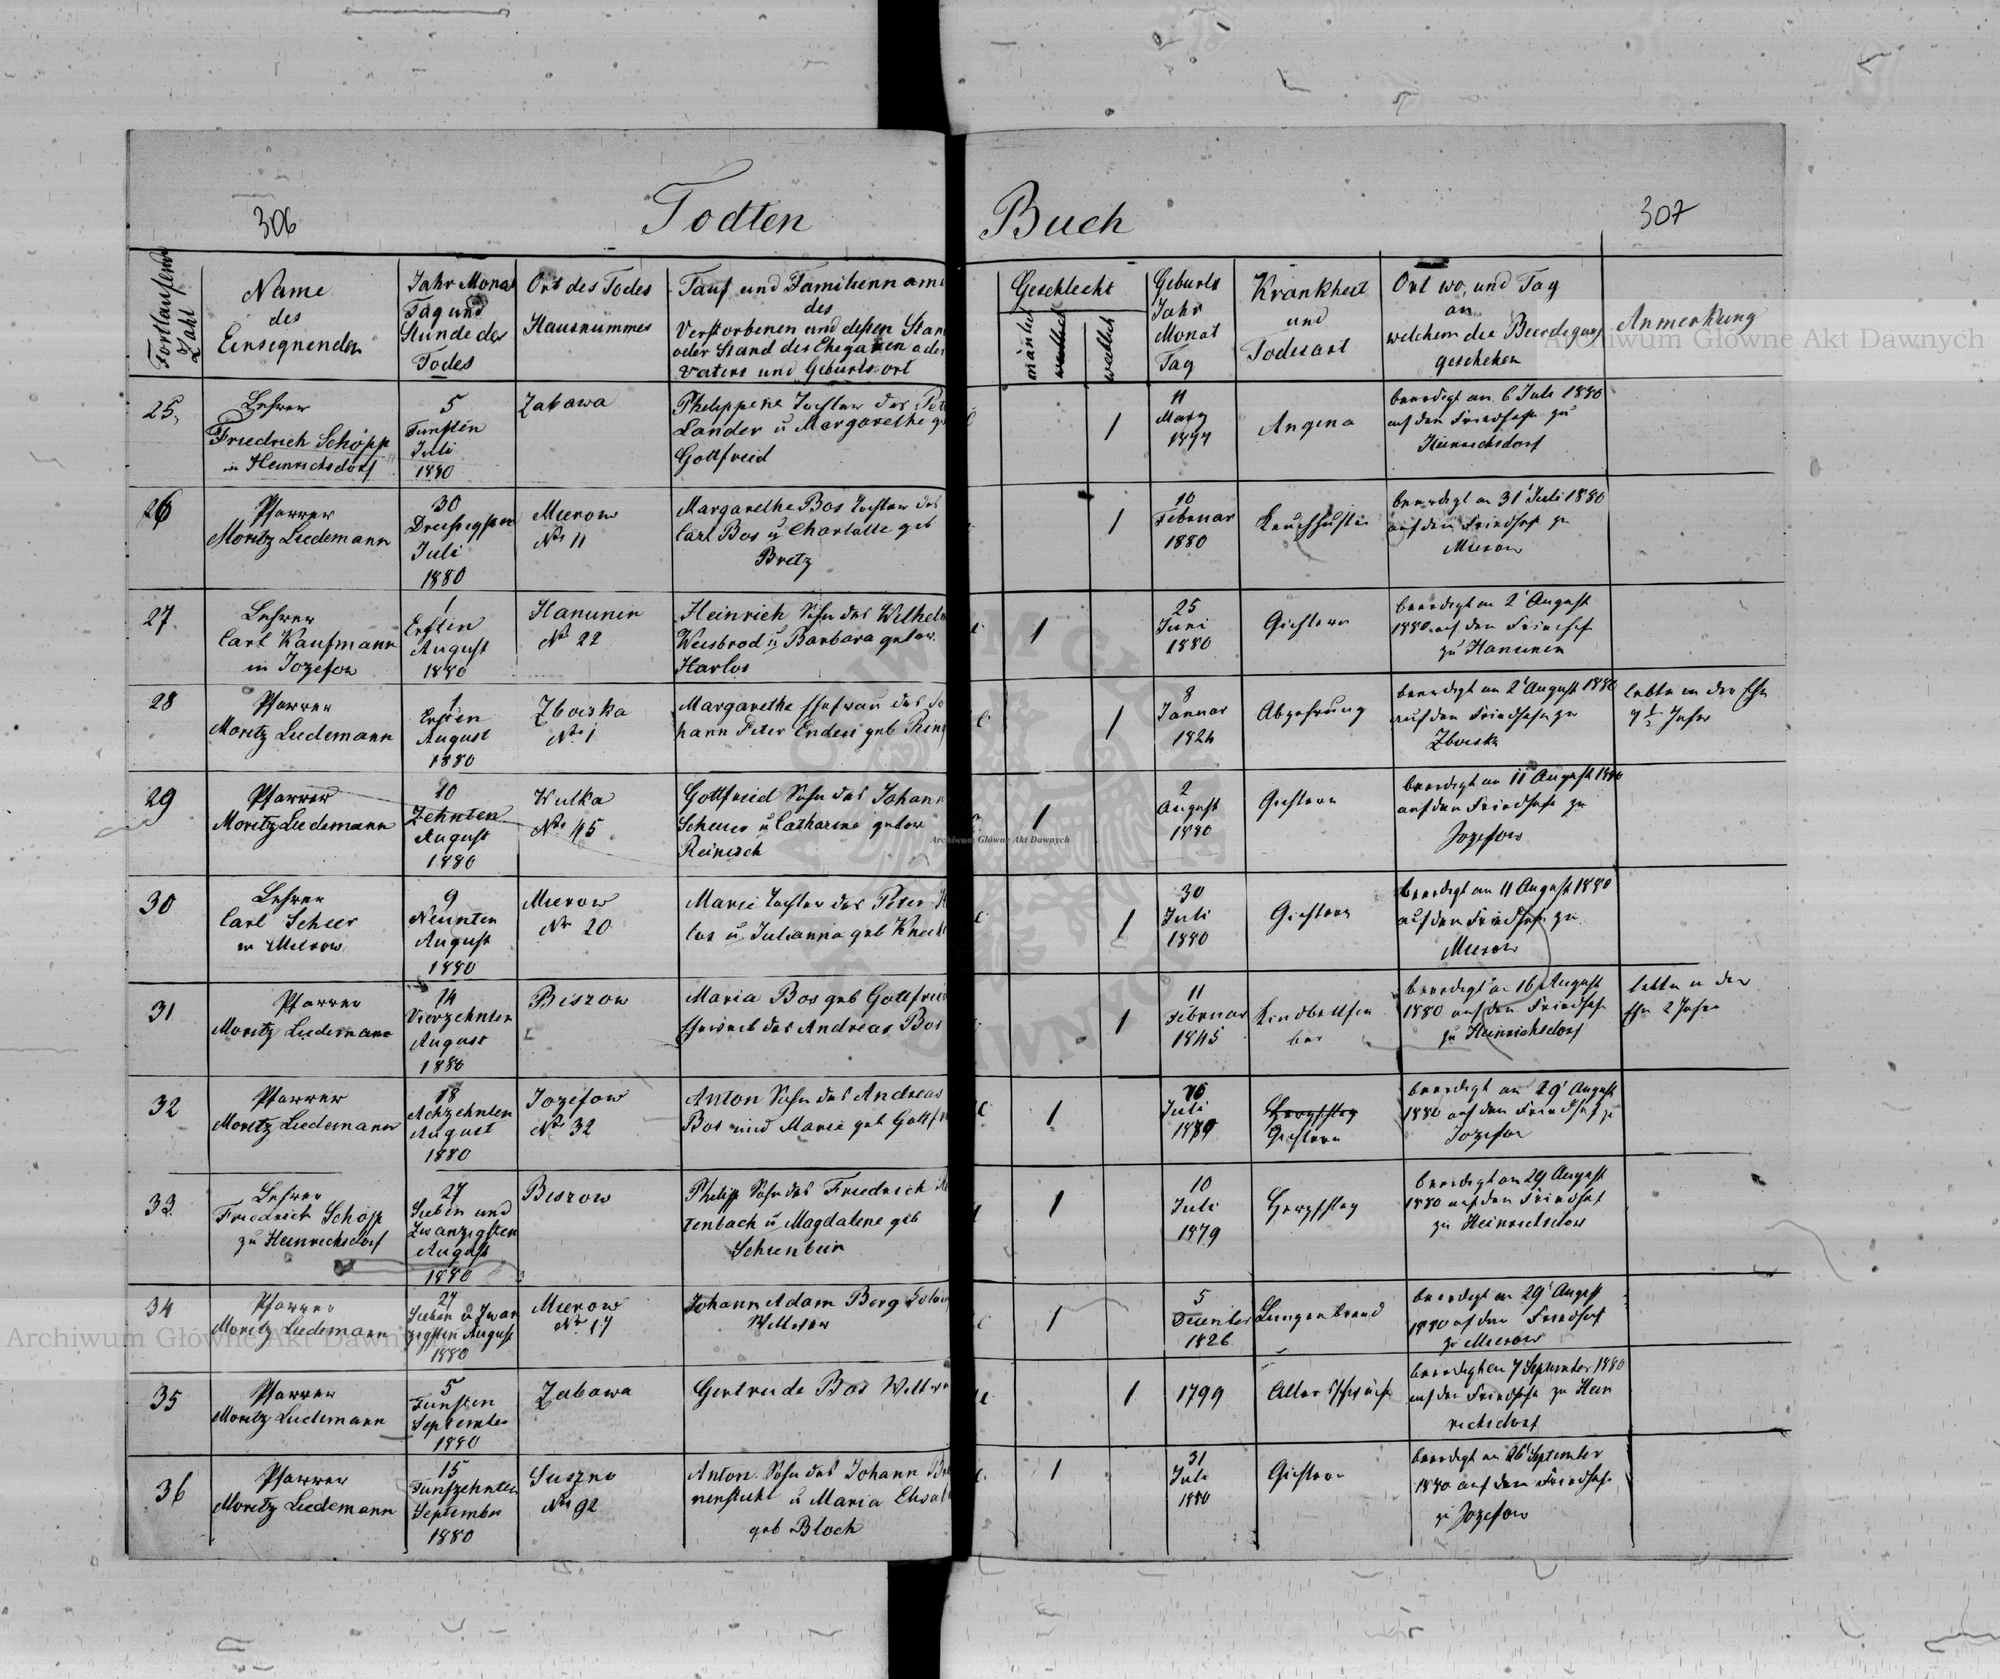 306
Todten
Buch
307
Fortlaufende Zahl
Name
des
Einsegnenden
Jahr Monat
Tag und
Stunde des
Todes
Ort des Todes
Hausnummer
Tauf und Familienname
des
Verstorbenen und dessen Stand
oder Stand des Ehegatten oder
Vaters und Geburtsort
Geschlecht
männlich
weiblich
weiblich
Geburts
Jahr
Monat
Tag
Krankheit
und
Todesart
Ort wo, und Tag
an
welchem die Beerdigung
geschehen
Anmerkung
25.
Lehrer
Friedrich Schöpp
in Heinrichsdorf
5
Fünften
Juli
1880
Zabawa
Philippine Tochter des Pet
Lander u Margarethe g
Gottfried
1
11
März
Angina
beerdigt am 6 Juli 1880
auf den Friedhofe zu
Heinrichsdorf
26
Pfarrer
Moritz Liedemann
30
Dreißigsten
Juli
1880
Mierow
No 11
Margarethe Bos Tochter des
Carl Bos u Charlotte geb
Bretz
1
10
Februar
1880
Keuchhusten
beerdigt am 31 Juli 1880
auf den Friedhofe zu
Mierow
27
Lehrer
Carl Kaufmann
in Jozefow
1
Ersten
August
1880
Hanunin
No 22
Heinrich Sohn des Wilhelm
Weisbrod u Barbara gebor.
Harlos
1
25
Juni
1880
Gichtern
beerdigt am 2 August
1880 auf den Friedhofe
zu Hanunin
28
Pfarrer
Moritz Liedemann
1
Ersten
August
1880
Zboiska
No 1
Margarethe Ehefrau des Jo
hann Peter Enders geb
1
8
Januar
1824
Abzehrung
beerdigt am 2 August 1880
auf den Friedhofe zu
Zboiska
lebte in der Ehe
7 ½ Jahre
29
Pfarrer
Moritz Liedemann
10
Zehnten
August
1880
Wulka
No 45
Gottfried Sohn des Johann
Scheuer u Catharine gebor
Reinisch
1
2
August
1880
Gichtern
beerdigt am 11 August 1880
auf den Friedhofe zu
Jozefow
30
Lehrer
Carl Scheer
in Mierow
9
Neunten
August
1880
Mierow
No 20
Marie Tochter des Peter H
los u Julianna geb Knecht
1
30
Juli
1880
Gichtern
beerdigt am 11 August 1880
auf den Friedhofe zu
Mierow
31
Pfarrer
Moritz Liedemann
14
Vierzehnten
August
1880
Biszow
Maria Bos geb Gottfried
Eheweib des Andreas Bos
1
11
Februar
1845
Kindbettfie
ber
beerdigt am 16 August
1880 auf den Friedhofe
zu Heinrichsdorf
lebte in der
Ehe 2 Jahre
32
Pfarrer
Moritz Liedemann
18
Achzehnten
August
1880
Jozefow
No 32
Anton Sohn des Andreas
Bos und Marie geb Gottfr
1
Juli
1879
Herzschlag
Gichtern
beerdigt am 19 August
1880 auf den Friedhof zu
Jozefow
33
Lehrer
Friedrich Schöpp
zu Heinrichsdorf
27
Sieben und
Zwanzigsten
August
1880
Biszow
Philipp Sohn des Friedrich
tenbach u Magdalene geb
Schienbein
1
10
Juli
1879
Herzschlag
beerdigt am 29 August
1880 auf den Friedhof
zu Heinrichsdorf
34
Pfarrer
Moritz Liedemann
27
Sieben u Zwan
zigsten August
1880
Mierow
No 17
Johann Adam Berg
Wittwer
1
5
1826
Lungenbrand
beerdigt am 29 August
1880 auf den Friedhof
zu Mierow
35
Pfarrer
Moritz Liedemann
5
Fünften
September
1880
Zabawa
Gertrude Bos Wittwe
1
1799
Altersschwäche
beerdigt am 7 September 1880
auf den Friedhofe zu Hein
richsdorf
36
Pfarrer
Moritz Liedemann
15
Fünfzehnten
September
1880
Suszno
No 92
Anton Sohn des Johann
nenstuhl u Maria Elisab
geb Bloch
1
31
Juli
1880
Gichtern
beerdigt am 26 September
1880 auf dem Friedhofe
zu Jozefow
Archiwum Główne Akt Dawnych
Archiwum Główne Akt Dawnych
Archiwum Główne Akt Dawnych